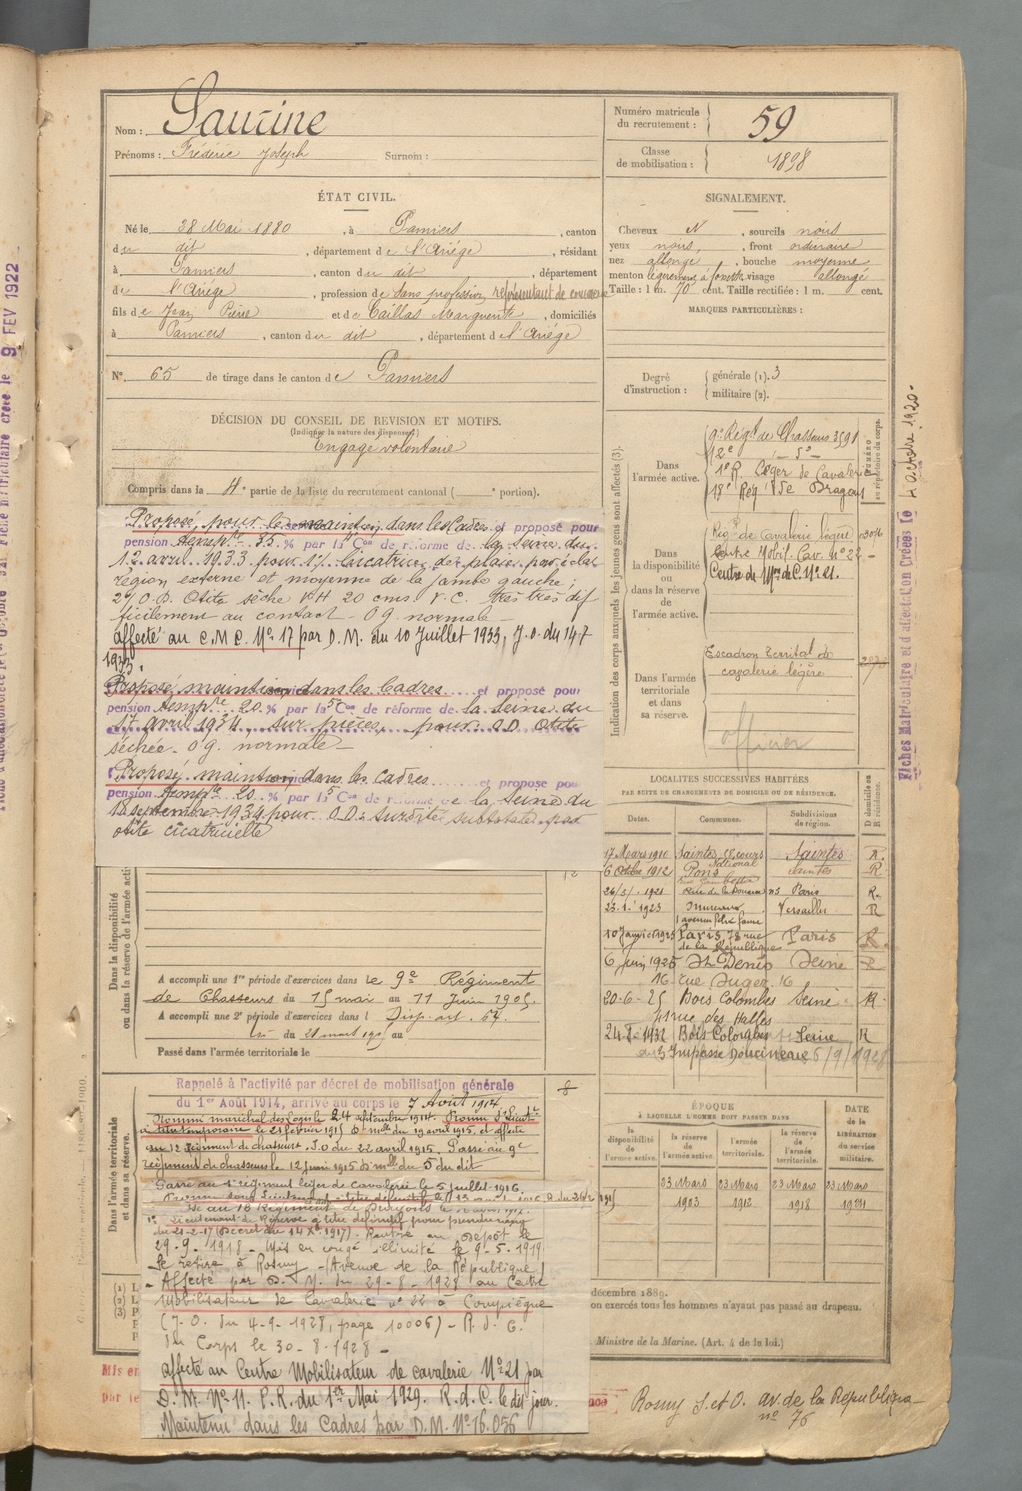 Nom : Saurine
Prénoms : Frédéric Joseph Surnom :
Numéro matricule du recrutement : 59
Classe de mobilisation : 1898
ÉTAT CIVIL.
Né le 28 Mai 1880, à Pamiers, canton
du dit, département de l'Ariége, résidant
à Pamiers, canton du dit, département
de l'Ariége, profession de sans profession représentant de commerce
fils de Jean Pierre et de Caillas Marguerite, domiciliés
à Pamiers, canton du dit, département de l'Ariége
No 65 de tirage dans le canton de Pamiers
DÉCISION DU CONSEIL DE REVISION ET MOTIFS.
(Indiquer la nature des dispenses)
Engagé volontaire
Compris dans la 4e partie de la liste du recrutement cantonal ( e portion).
SIGNALEMENT.
Cheveux N, sourcils noirs
yeux noirs, front ordinaire
nez allongé, bouche moyenne
menton légèrement à fossette visage allongé
Taille : 1 m. 70 cent. Taille rectifiée : 1 m. cent.
MARQUES PARTICULIÈRES :
Degré d'instruction : générale (1). 3
militaire (2).
Indication des corps auxquels les jeunes gens sont affectés (3).
NUMÉRO au répertoire du corps.
Dans l'armée active.
9e Régt de Chasseurs 3591
12e — 5e —
1er R. Léger de Cavalerie
18e Régt de Dragons
Dans la disponibilité ou dans la réserve de l'armée active.
Régt de cavalerie légère
Centre Mobil. Cav. No 22 -
Centre de No 21.
Dans l'armée territoriale et dans sa réserve.
Escadron territal de
cavalerie légère
officier
Proposé pour le maintien dans les Cadres et proposé pour
pension tempre 35 % par la Con de réforme de la Seine du
12 avril 1933 pour 1°/ cicatrices de plaies par éclat
région externe et moyenne de la jambe gauche ;
2°/ O.D. Otite sèche VH 20 cms V.C. très très dif
ficilement au contact - O g. normale -
affecté au C.M.C. No 17 par D.M. du 10 Juillet 1933, J.O. du 14-7
1933.
Proposé maintien dans les Cadres et proposé pour
pension tempre 20 % par la 5 Con de réforme de la Seine du
17 avril 1934 sur pièces pour O D Otite
sèchée - O g. normale -
Proposé maintien dans les Cadres et proposé pour
pension tempre 20 % par la 5 Con de réforme de la Seine du
septembre 1934 pour O.D. : Surdité subtotale par
otite cicatricielle
LOCALITÉS SUCCESSIVES HABITÉES
PAR SUITE DE CHANGEMENTS DE DOMICILE OU DE RÉSIDENCE.
Dates. Communes. Subdivisions de région. D domicile ou R résidence.
17 Mars 1910 Saintes, cours National Saintes R.
6 Octobre 1912 Pons Saintes R.
26/3/1921 Rue de la Douane Paris R.
23.1.1923 Versailles R
10 Janvier 1925 Paris, 78 rue de la République Paris R
6 juin 1925 St Denis Seine R
16 rue Suger, 16
20-6-25 Bois Colombes Seine R
41 rue des Halles
24-8-1932 Bois Colombes Seine R
3 Impasse Doucineau 5/9/1928
Dans la disponibilité ou dans la réserve de l'armée active
A accompli une 1re période d'exercices dans le 9e Régiment
de Chasseurs du 15 mai au 11 Juin 1905.
A accompli une 2e période d'exercices dans l Disp. art. 64.
du 21 mars 19 au
Passé dans l'armée territoriale le
Dans l'armée territoriale et dans sa réserve.
Rappelé à l'activité par décret de mobilisation générale
du 1er Août 1914, arrivé au corps le 7 Août 1914
Nommé maréchal des logis le 24 septembre 1914. Promu s/Lieutt
à titre temporaire le 21 février 1915 D. mlle du 19 avril 1915, et affecté
au 12 Régiment de chasseurs J.O du 22 avril 1915. Passé au 9e
régiment de chasseurs le 12 juin 1915 D mlle du 5 du dit
Passé au 1er régiment léger de cavalerie le 5 juillet 1916.
Promu sous-Lieutenant à titre définitif
Passé au 18 Régiment de Dragons
Lieutenant de Réserve à titre définitif pour prendre rang
du 21-2-17 (Décret du 14 Xe 1917). Rentré au dépôt le
29-9-1918 - Mis en congé illimité le 9-5-1919
Se retire à Rosny - (Avenue de la République)
- Affecté par D.M. du 29-8-1928 au Centre
Mobilisateur de Cavalerie no 22 à Compiègne
(J.O. du 4-9-1928, page 10006) - R. d. C.
du Corps le 30-8-1928 -
affecté au Centre Mobilisateur de cavalerie No 21 par
D.M. No 11. P.R. du 1er Mai 1929. R.d.C. le dit jour.
Maintenu dans les Cadres par D.M. No 16.036
ÉPOQUE
À LAQUELLE L'HOMME DOIT PASSER DANS
la disponibilité de l'armée active.
la réserve de l'armée active.
l'armée territoriale.
la réserve de l'armée territoriale.
DATE de la LIBÉRATION du service militaire.
23 Mars 1903
23 Mars 1912
23 Mars 1918
23 Mars 1921
décembre 1889.
on exercés tous les hommes n'ayant pas passé au drapeau.
Ministre de la Marine. (Art. 4 de la loi.)
Rosny S. et O. av. de la République
no 76
Fiches Matriculaire et d'affectation Créées le 4 octobre 1920.
9 FEV 1922